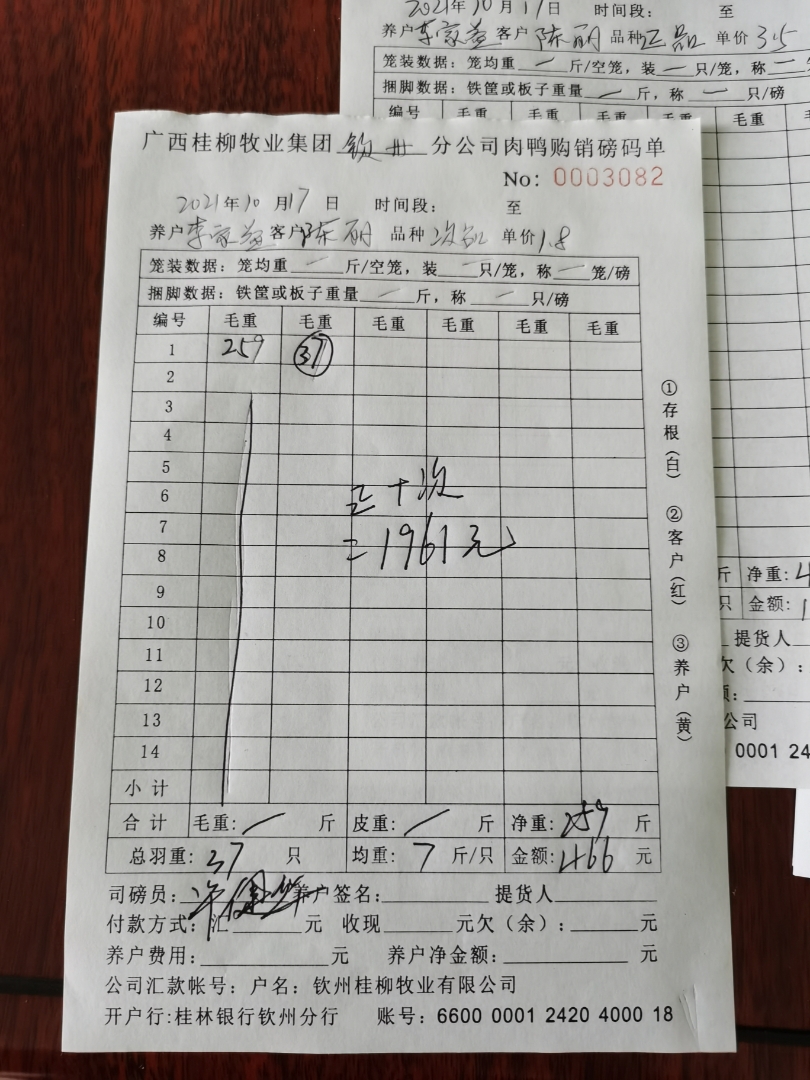 2021年10月17日 时间段: 至
养户李家益客户陈丽 品种正品 单价3.5
笼装数据: 笼均重 一 斤/空笼, 装 一 只/笼, 称 一
捆脚数据: 铁筐或板子重量 一 斤, 称 一 只/磅
编号 毛重 毛重 毛重 毛重 毛重
广西桂柳牧业集团 钦州 分公司肉鸭购销磅码单
No: 0003082
2021年10月17日 时间段: 至
养户李家益客户陈丽 品种次品 单价1.8
笼装数据: 笼均重 一 斤/空笼, 装 一 只/笼, 称 一 笼/磅
捆脚数据: 铁筐或板子重量 一 斤, 称 一 只/磅
编号 毛重 毛重 毛重 毛重 毛重 毛重
1 259 37
2
3
4
5
6
7
8
9
10
11
12
13
14
正+次
=1961元
小计
合计 毛重: / 斤 皮重: / 斤 净重: 259 斤
总羽重: 37 只 均重: 7 斤/只 金额: 466 元
司磅员: 养户签名: 提货人
付款方式: 汇 元 收现 元欠(余): 元
养户费用: 元 养户净金额: 元
公司汇款帐号: 户名: 钦州桂柳牧业有限公司
开户行:桂林银行钦州分行 账号: 6600 0001 2420 4000 18
①存根(白) ②客户(红) ③养户(黄)
斤 净重: 4
只 金额: 1
提货人
欠(余):
额:
公司
0001 24